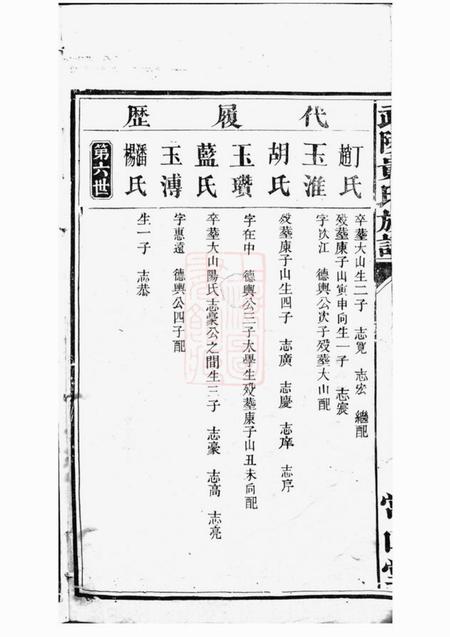 武陵黃氏族譜
歷履代
丁氏 趙氏
卒葬大山生二子 志寬 志宏 繼配
歿葬康子山寅申向生一子 志宸
玉淮
字次江 德興公次子歿葬大山配
胡氏
歿葬康子山生四子 志廣 志慶 志庠 志序
玉瓚
字在中 德興公三子太學生歿葬康子山丑未向配
藍氏
卒葬大山陽氏志豪公之間生三子 志豪 志高 志亮
玉溥
字惠遠 德興公四子配
潘氏 楊氏
生一子 志恭
第六世